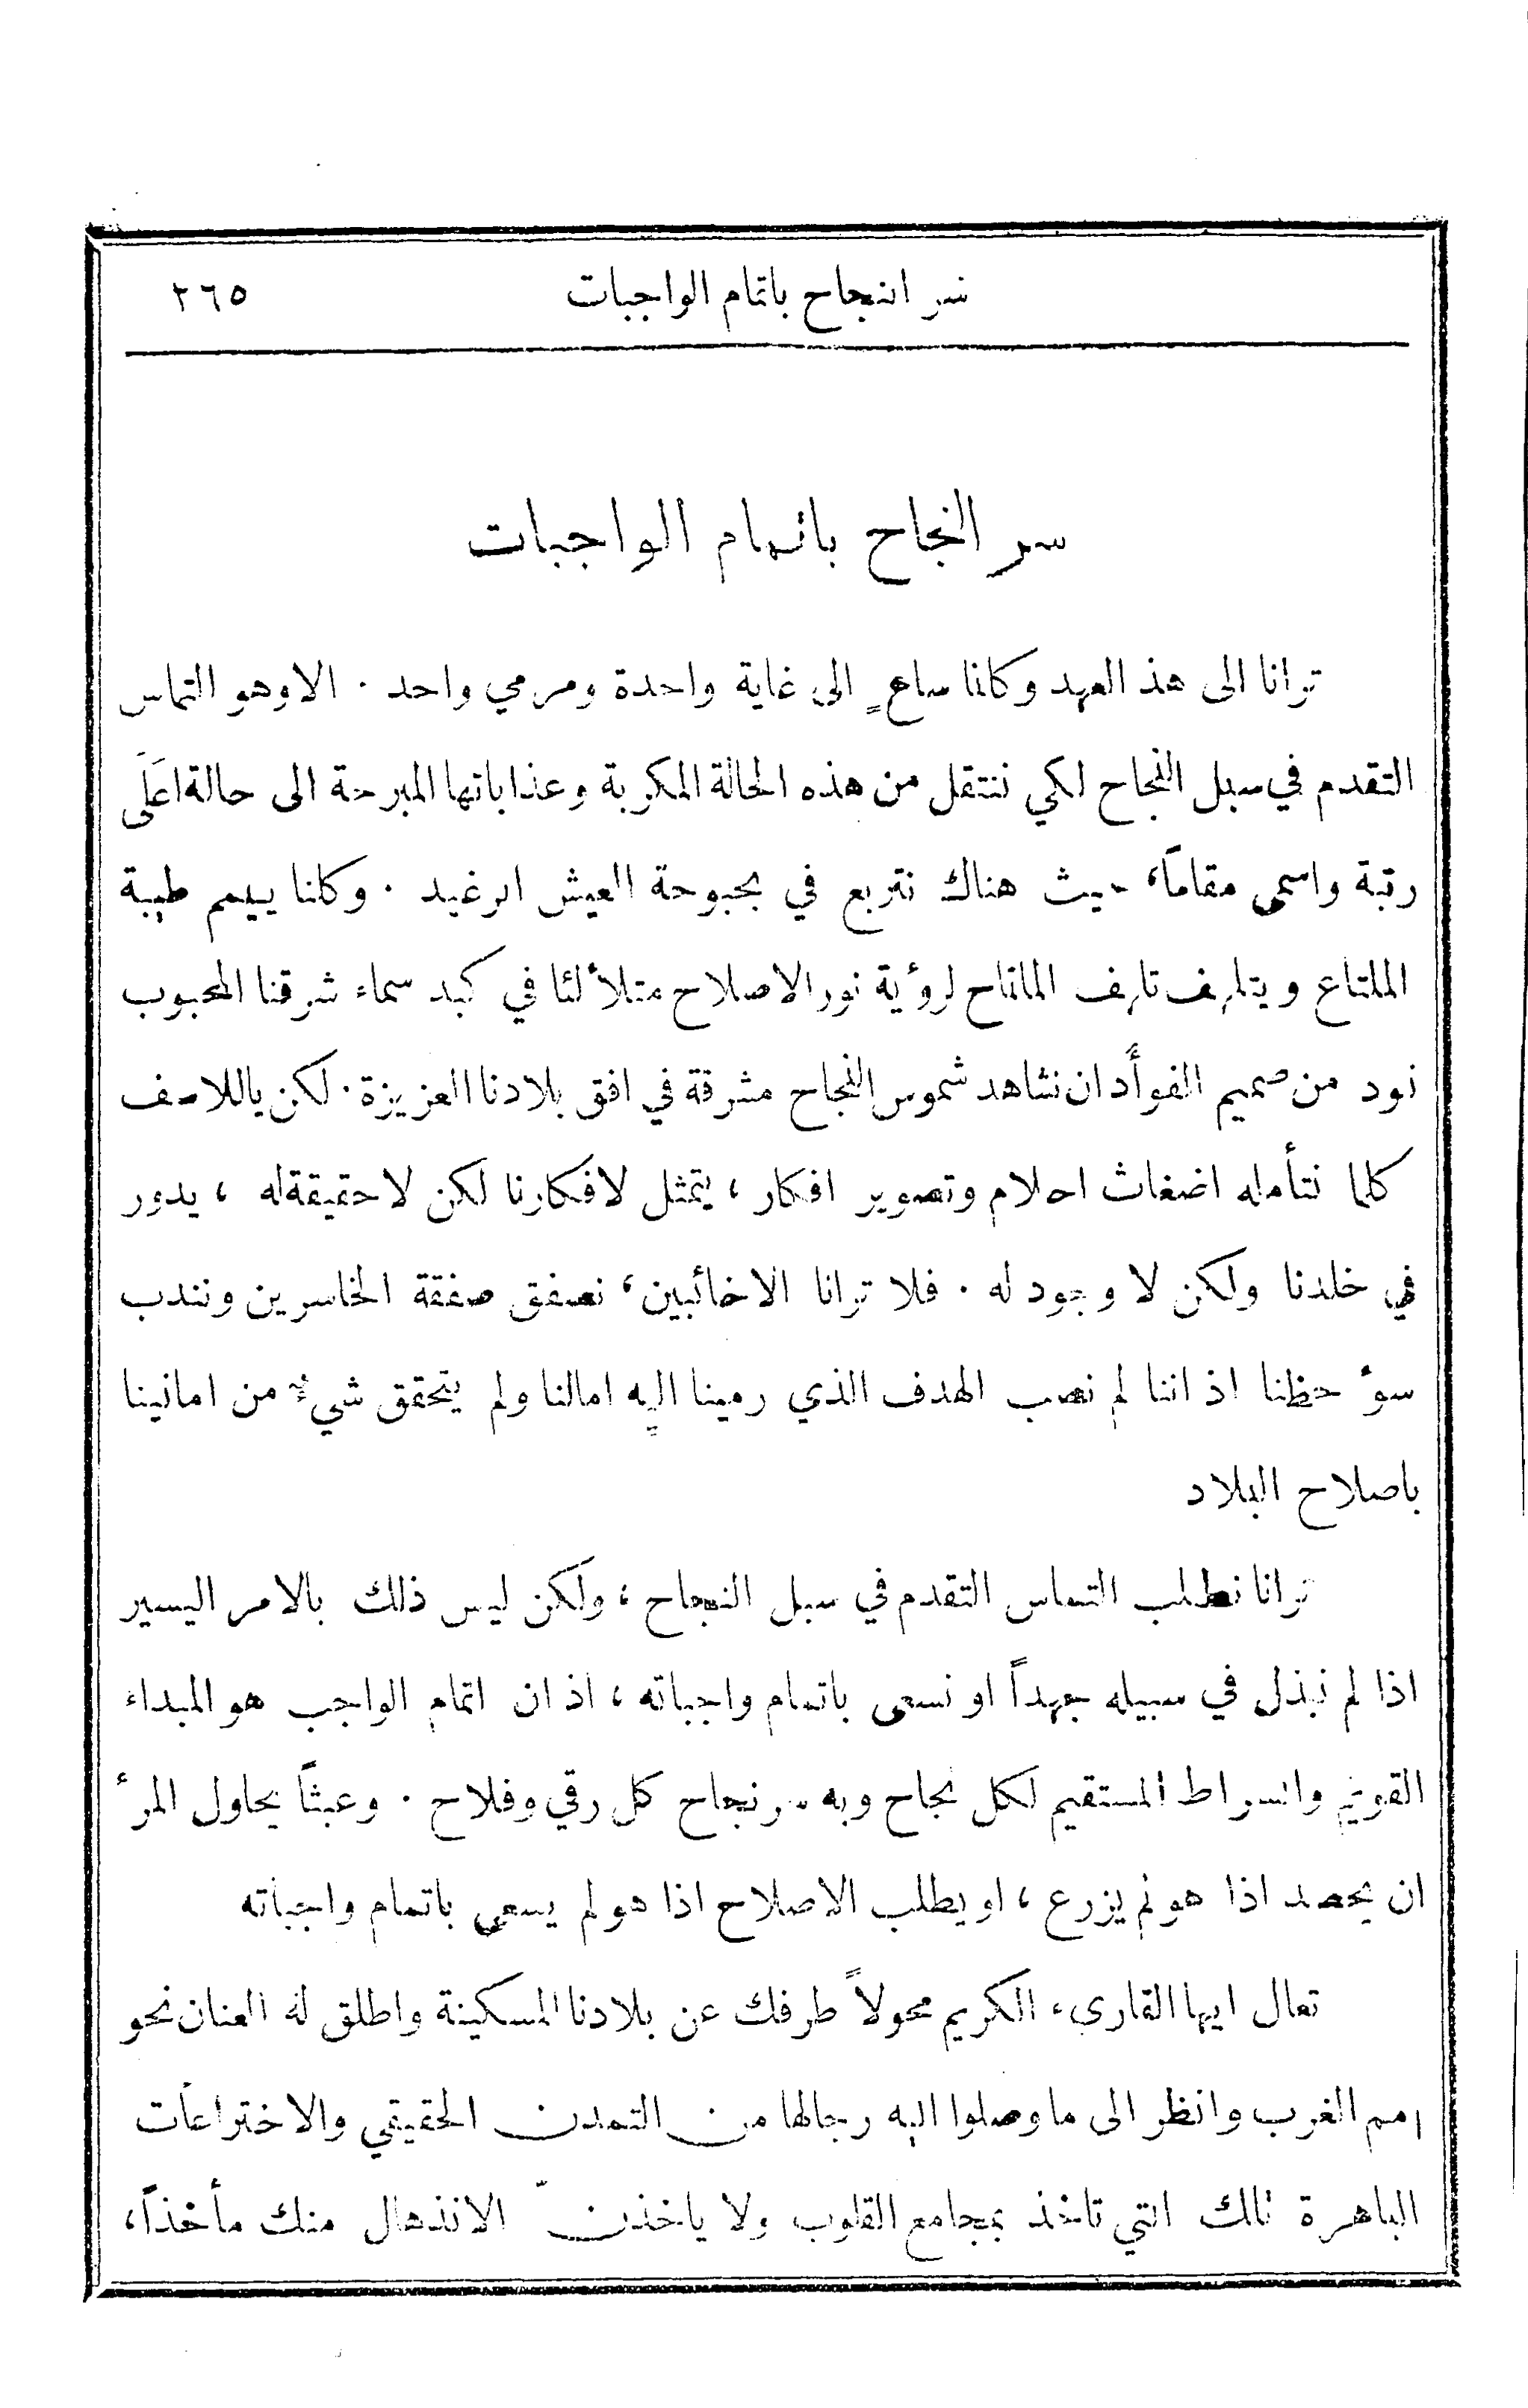 سر النجاح باتمام الواجبات ٢٦٥
سر النجاح باتمام الواجبات
ترانا الى هذ العهد وكلنا ساعٍ الى غاية واحدة ومرمي واحد . الا وهو التماس
التقدم في سبل النجاح لكي ننتقل من هذه الحالة المكربة وعذاباتها المبرحة الى حالة اعلى
رتبة واسمى مقاماً، حيث هناك نتربع في بحبوحة العيش الرغيد . وكلنا يهيم طيبة
الملتاع ويتلهف تلهف الملتاح لرؤية نور الاصلاح متلألئا في كبد سماء شرقنا المحبوب
نود من صميم الفوأد ان نشاهد شموس النجاح مشرقة في افق بلادنا العزيزة . لكن ياللاسف
كلما نتأمله اضغاث احلام وتصوير افكار ، يتمثل لافكارنا لكن لا حقيقة له ، يدور
في خلدنا ولكن لا وجود له . فلا ترانا الا خائبين ، نصفق صفقة الخاسرين ونندب
سوء حظنا اذ اننا لم نصب الهدف الذي رمينا اليه امالنا ولم يتحقق شيءٌ من امانينا
باصلاح البلاد
ترانا نطلب التماس التقدم في سبل النجاح ، ولكن ليس ذلك بالامر اليسير
اذا لم نبذل في سبيله جهداً او نسعى باتمام واجباته ، اذ ان اتمام الواجب هو المبداء
القويم والسراط المستقيم لكل نجاح وبه سر نجاح كل رقي وفلاح . وعبثاً يحاول المرء
ان يحصد اذا هو لم يزرع ، او يطلب الاصلاح اذا هو لم يسعى باتمام واجباته
تعال ايها القارىء الكريم محولاً طرفك عن بلادنا المسكينة واطلق له العنان نحو
امم الغرب وانظر الى ما وصلوا اليه رجالها من التمدن الحقيقي والاختراعات
الباهرة تلك التي تاخذ بمجامع القلوب ولا ياخذنّ الانذهال منك مأخذاً،